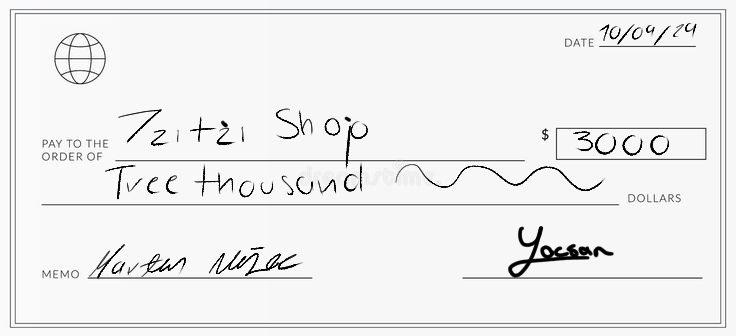 DATE 10/09/24
PAY TO THE ORDER OF Tzitzi Shop $ 3000
Tree thousand DOLLARS
MEMO Yocsan